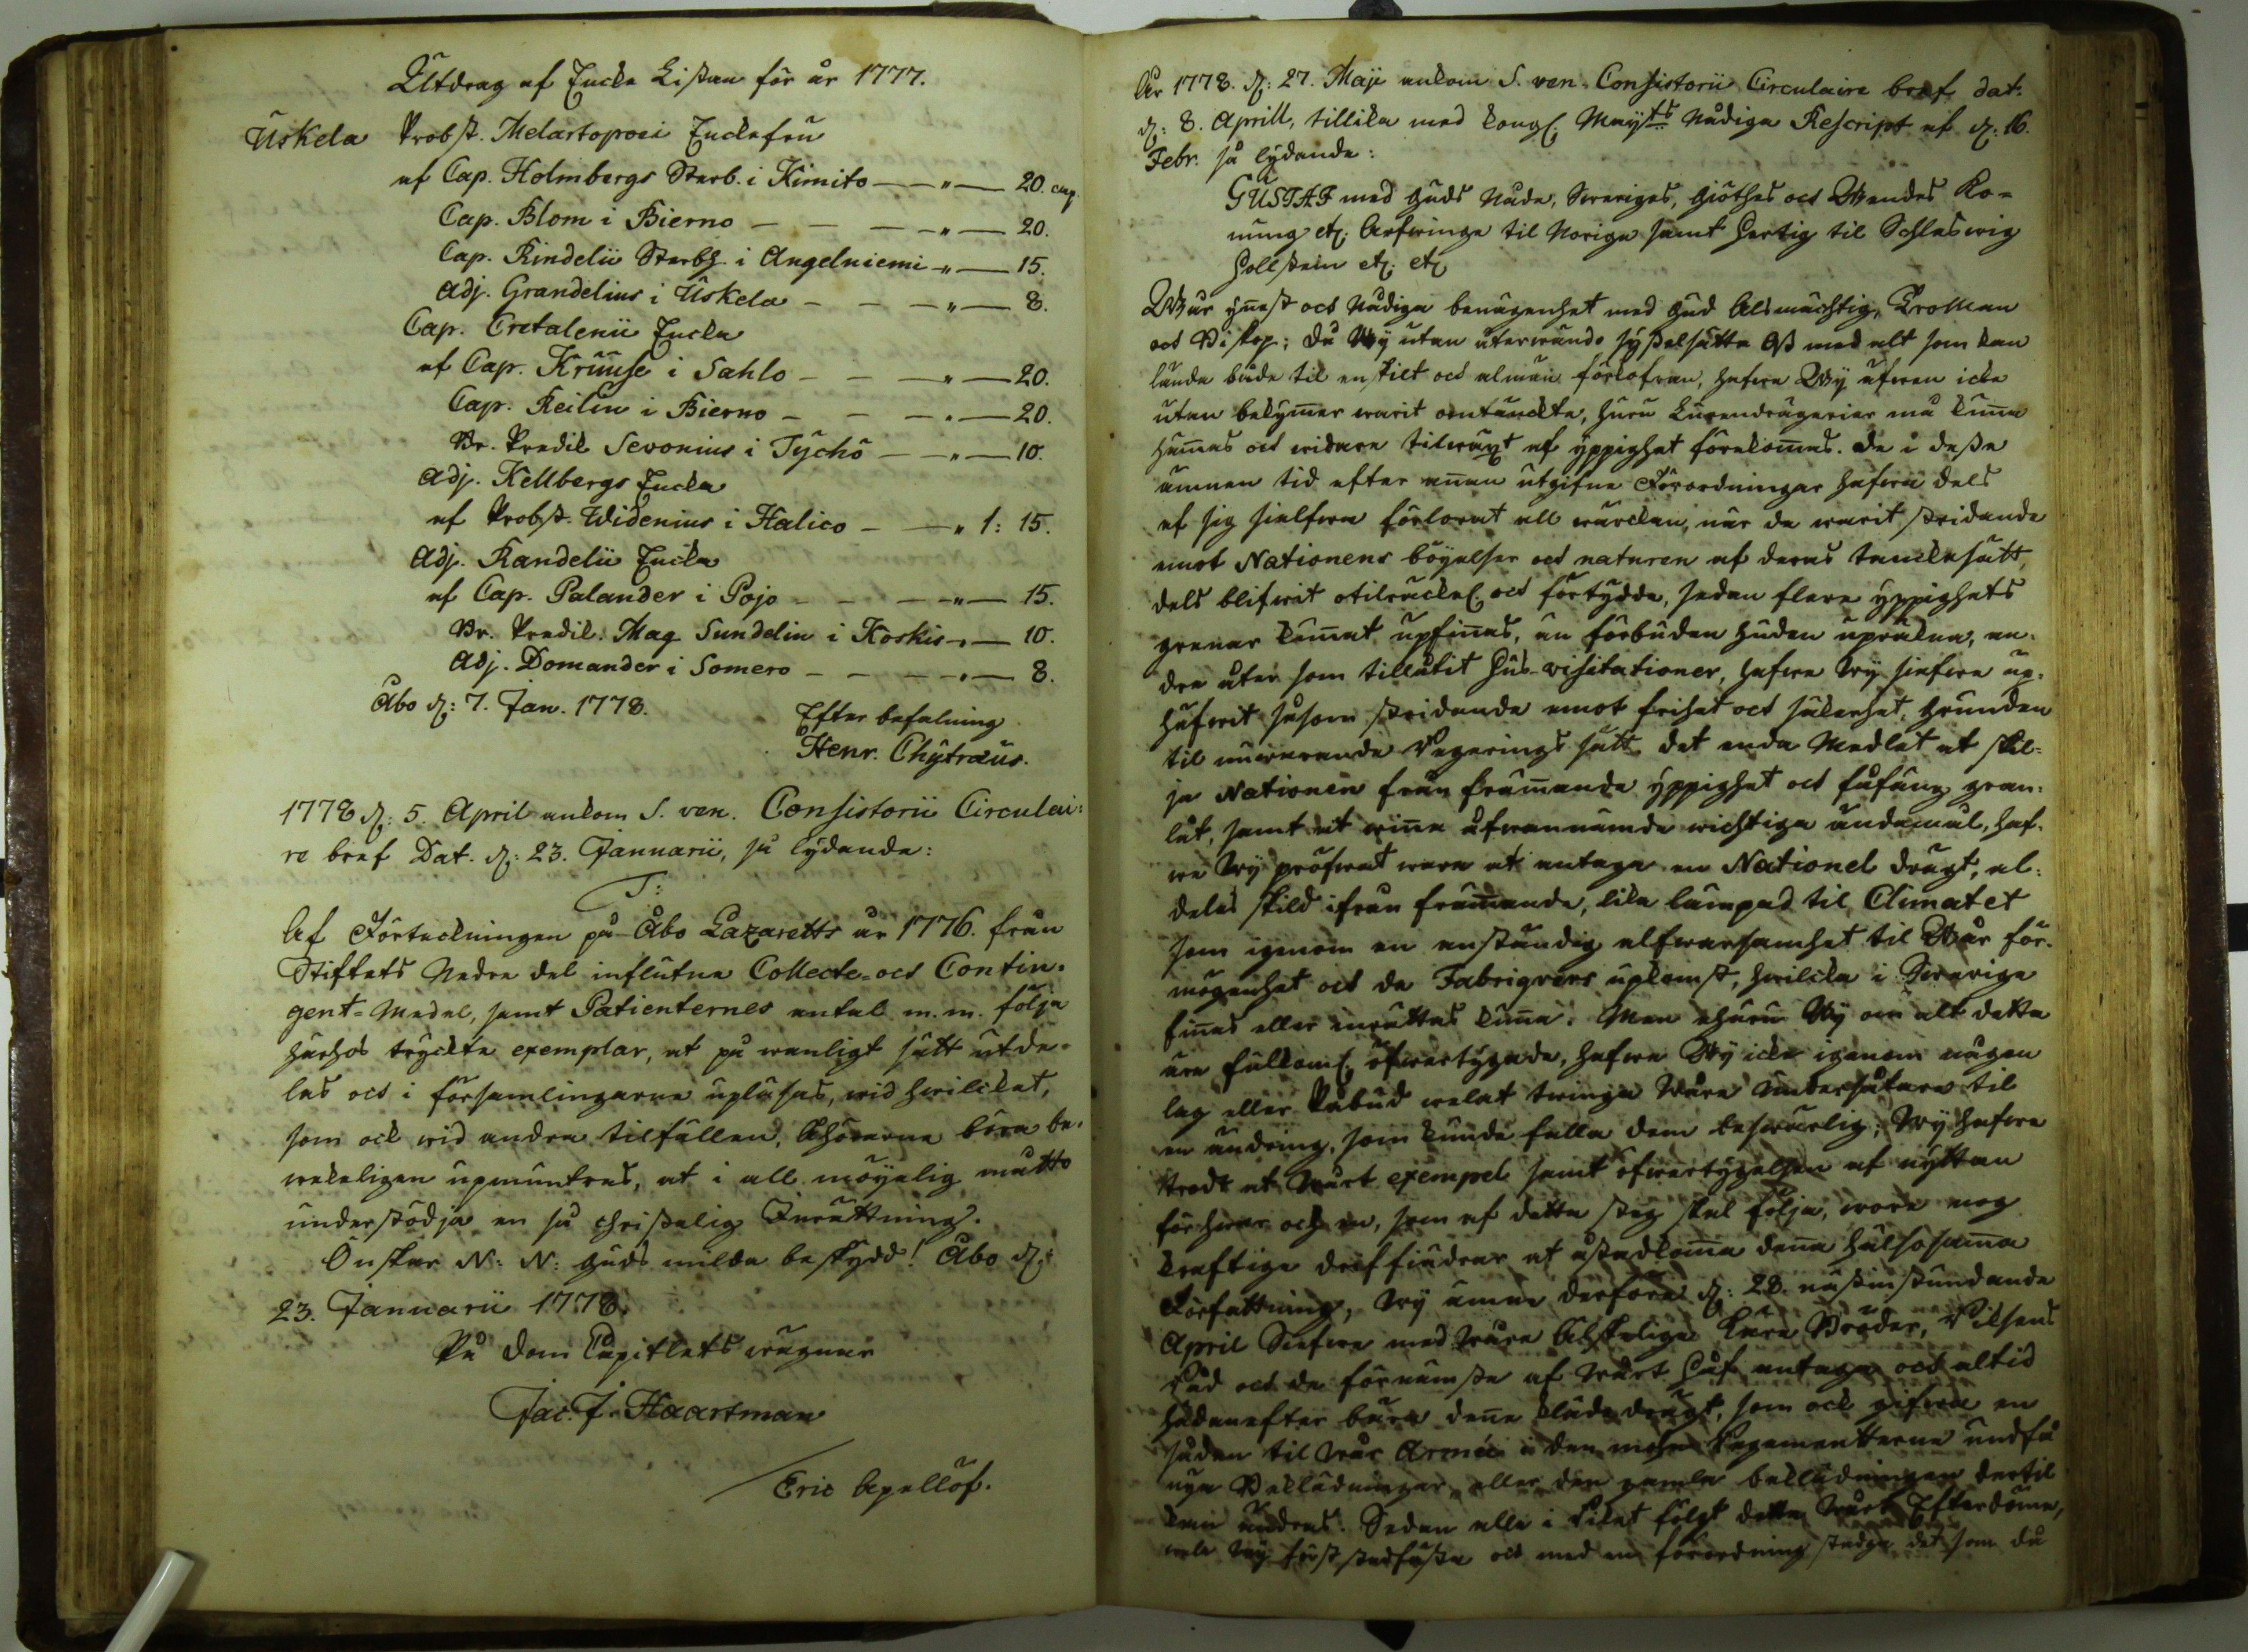 Utdrag af Encke Listan för år 1777.
Uskela Probst. Melartopoei Enckefru
af Cap. Holmbergs Sterb. i Kimito — " — 20.
Cap. Blom i Bierno — — — " — 20.
Cap. Rindelii Sterbh. i Angelniemi " — 15.
Adj. Grandelius i Uskela — — — " — 8.
Cap. Cretalenii Encka
af Cap. Kruuse i Sahlo — — — " — 20.
Cap. Reilin i Bierno — — — " — 20.
Br. Predik Sevonius i Tychö — — " — 10.
Adj. Kellbergs Encka
af Probst. Widenius i Halico — — " 1: 15.
Adj. Randelii Encka
af Cap. Palander i Pojo — — — " — 15.
Br. Predik. Mag Sundelin i Koskis " — 10.
Adj. Domander i Somero — — — " — 8.
Åbo d: 7. Jan. 1778.
Efter befalning
Henr. Chytraüs.
1778 d: 5. April ankom S. ven. Consistorii Circulai=
re bref Dat. d: 23. Januarii, så lydande:
T:
Af Förteckningen på Åbo Lazaretts år 1776. från
Stiftets Nedre del influtna Collecte= och Contin=
gent= Medel, samt Patienternes antal m. m. följa
härhos tryckta exemplar, at på wanligt sätt utde=
las och i församlingarna upläsas, wid hwilcket,
som ock wid andra tilfällen, åhörarne böra be=
wekeligen upmuntras, at i all möyelig måtto
understödja en så christelig Inrättning.
Önskar N: N: Guds milda beskydd! Åbo d:
23. Januarii 1778.
På Dom Capitlets wägnar
Jac. J. Haartman
/ Eric Apellöf.
År 1778. d: 27. Maji ankom S. ven. Consistorii Circulaire bref dat.
d: 8. Aprill, tillika med Kongl. Mayts Nådiga Rescript af d: 16.
Febr. så lydande:
GUSTAF med Guds Nåde, Sweriges, Giöthes och Wendes Ko=
nung etc. Arfwinge til Norige samt Hertig til Schleswig
Hollstein etc. etc
Wår ynnest och Nådiga benägenhet med Gud Alsmächtig, Troman
och Biskop; Då Wy utan återwändo sysselsätta Oss med alt som kan
lända både til enskilt och almän förkofran, hafwa Wy äfwen icke
utan bekymmer warit omtänckte, huru Lurendrägerier må kunna
hämmas och widare tilwäxt af yppighet förekommas. De i dessa
ämnen tid efter annan utgifne Förordningar hafwa dels
af sig sielfwa förlorat all wärckan, när de warit stridande
emot Nationens böyelser och naturen af deras tanckesätt,
dels blifwit otilräckel. och förtydda, sedan flere yppighets
grenar kunnat upfinnas, än förbuden hunden upräkna, an=
dra åter som tillåtit Hus-visitationer, hafwa Wy sielfwa up=
häfwit såsom stridande emot frihet och säkerhet, grunden
til nuwarande Regerings sätt. Det enda Medlet at skil=
ja Nationen från främmande yppighet och fåfäng gran=
låt, samt at winna åfwannämde wichtiga ändamål, haf=
wa Wy pröfwat wara at antaga en Nationel drägt, al=
deles skild ifrån främmande, lika lämpad til Climatet
som igenom en anständig alfwarsamhet til Wår för=
mögenhet och de Fabriquers upkomst, hwilcka i Swerige
finnas eller inrättas kunna. Men ehuru Wy om alt detta
äre fullkoml. öfwertygade, hafwa Wy icke igenom någon
lag eller Påbud welat twinga Wåre Undersåtare til
en ändring, som kunde falla dem beswärlig; Wy hafwa
trodt at Wårt exempel samt öfwertygelsen af nyttan
för hwar och en, som af detta steg skal följa, wore nog
kraftige driffiädrar at åstadkomma denna hälsosamma
Författning, Wy ämna derföre d: 28. nästinstundande
April Sielfwe med Wåra Älskelige Käre Bröder, Riksens
Råd och de förnämsta af Wårt Håf antaga och altid
hädanefter bära denna klädedrägt, som ock gifwa en
sådan til Wår Armée i den mohn Regementerne undfå
nya Beklädningar, eller den gamla beklädningen dertil
kan ändras. Sedan alla i Riket fölgt detta Wårt Efterdöme,
wele Wy först stadfästa och med en förordning stadga det som då